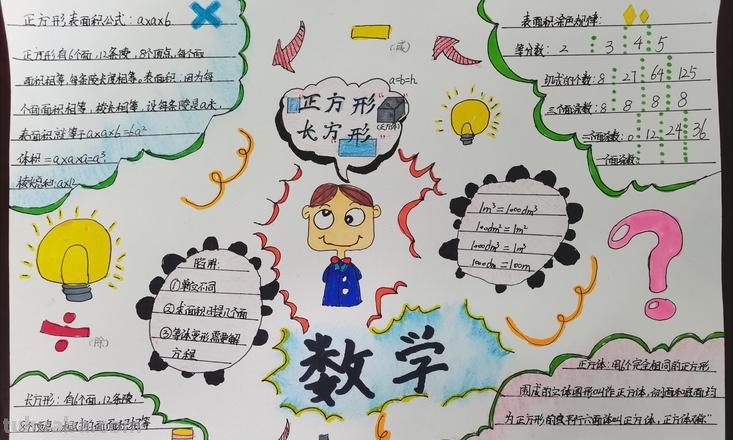 正方形表面积公式：a×a×6
正方形有6个面，12条棱，8个顶点，每个面
面积相等，每条棱长度相等。表面积，因为每
个面面积相等，棱长相等，设每条棱是a米，
表面积就等于a×a×6=6a²
体积=a×a×a=a³
棱长总和：a×12
(减)
a=b=h
正方形
长方形
(正方体)
表面积涂色规律：
等分数：2 3 4 5
切成的个数：8 27 64 125
三个面涂数：8 8 8 8
二个面涂数：0 12 24 36
一个面涂数：
1m³=1000dm³
100dm²=1m²
1000dm³=1m³
1000dm=100m
陷阱：
①单位不同
②表面积计算几个面
③等体变形需要解
方程
(除)
数学
长方形：有6个面，12条棱，
正方体：用6个完全相同的正方形
围成的立体图形叫作正方体，
为正方形的直平行六面体叫正方体，正方体